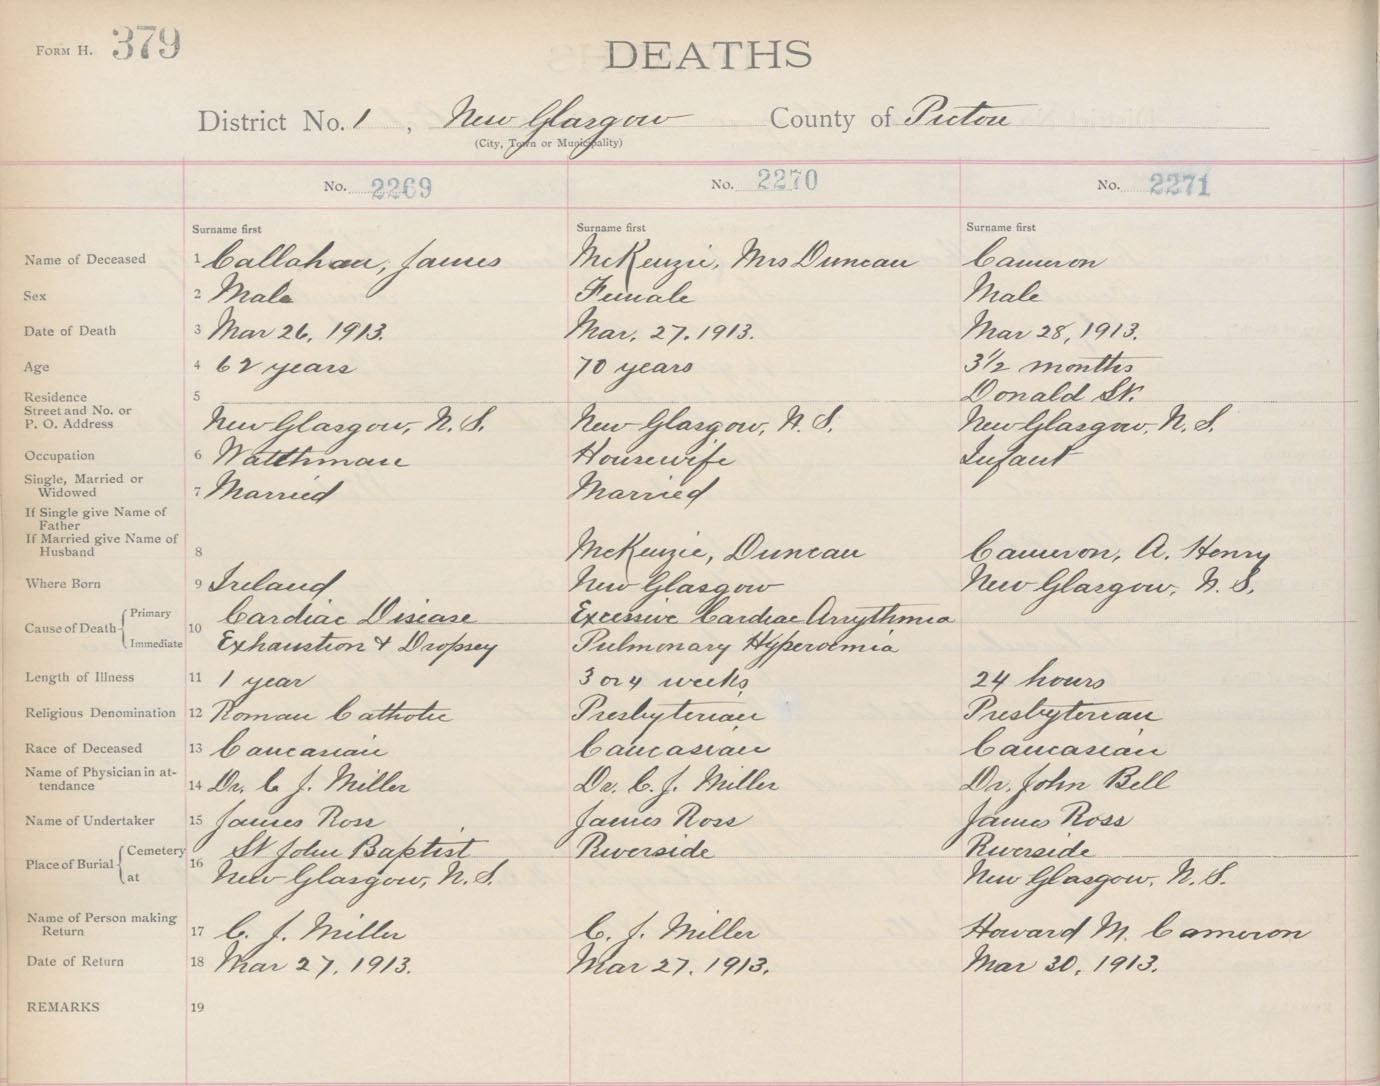 FORM H. 379
DEATHS
District No. 1, New Glasgow County of Pictou
(City, Town or Municipality)
No. 2269 No. 2270 No. 2271
Surname first Surname first Surname first
Name of Deceased 1 Callahan, James McKenzie, Mrs Duncan Cameron
Sex 2 Male Female Male
Date of Death 3 Mar 26, 1913. Mar. 27. 1913. Mar 28, 1913.
Age 4 62 years 70 years 3 1/2 months
Residence 5 Donald St.
Street and No. or
P. O. Address New Glasgow, N. S. New Glasgow, N. S. New Glasgow, N. S.
Occupation 6 Watchman Housewife Infant
Single, Married or
Widowed 7 Married Married
If Single give Name of
Father
If Married give Name of
Husband 8 McKenzie, Duncan Cameron, A. Henry
Where Born 9 Ireland New Glasgow New Glasgow, N. S.
Cause of Death 10
Primary Cardiac Disease Excessive Cardiac Arrythmia
Immediate Exhaustion & Dropsey Pulmonary Hyperoemia
Length of Illness 11 1 year 3 or 4 weeks 24 hours
Religious Denomination 12 Roman Catholic Presbyterian Presbyterian
Race of Deceased 13 Caucasian Caucasian Caucasian
Name of Physician in at-
tendance 14 Dr. C. J. Miller Dr. C. J. Miller Dr. John Bell
Name of Undertaker 15 James Ross James Ross James Ross
Place of Burial 16
Cemetery St John Baptist Riverside Riverside
at New Glasgow, N. S. New Glasgow, N. S.
Name of Person making
Return 17 C. J. Miller C. J. Miller Howard M. Cameron
Date of Return 18 Mar 27, 1913. Mar 27. 1913. Mar 30, 1913.
REMARKS 19